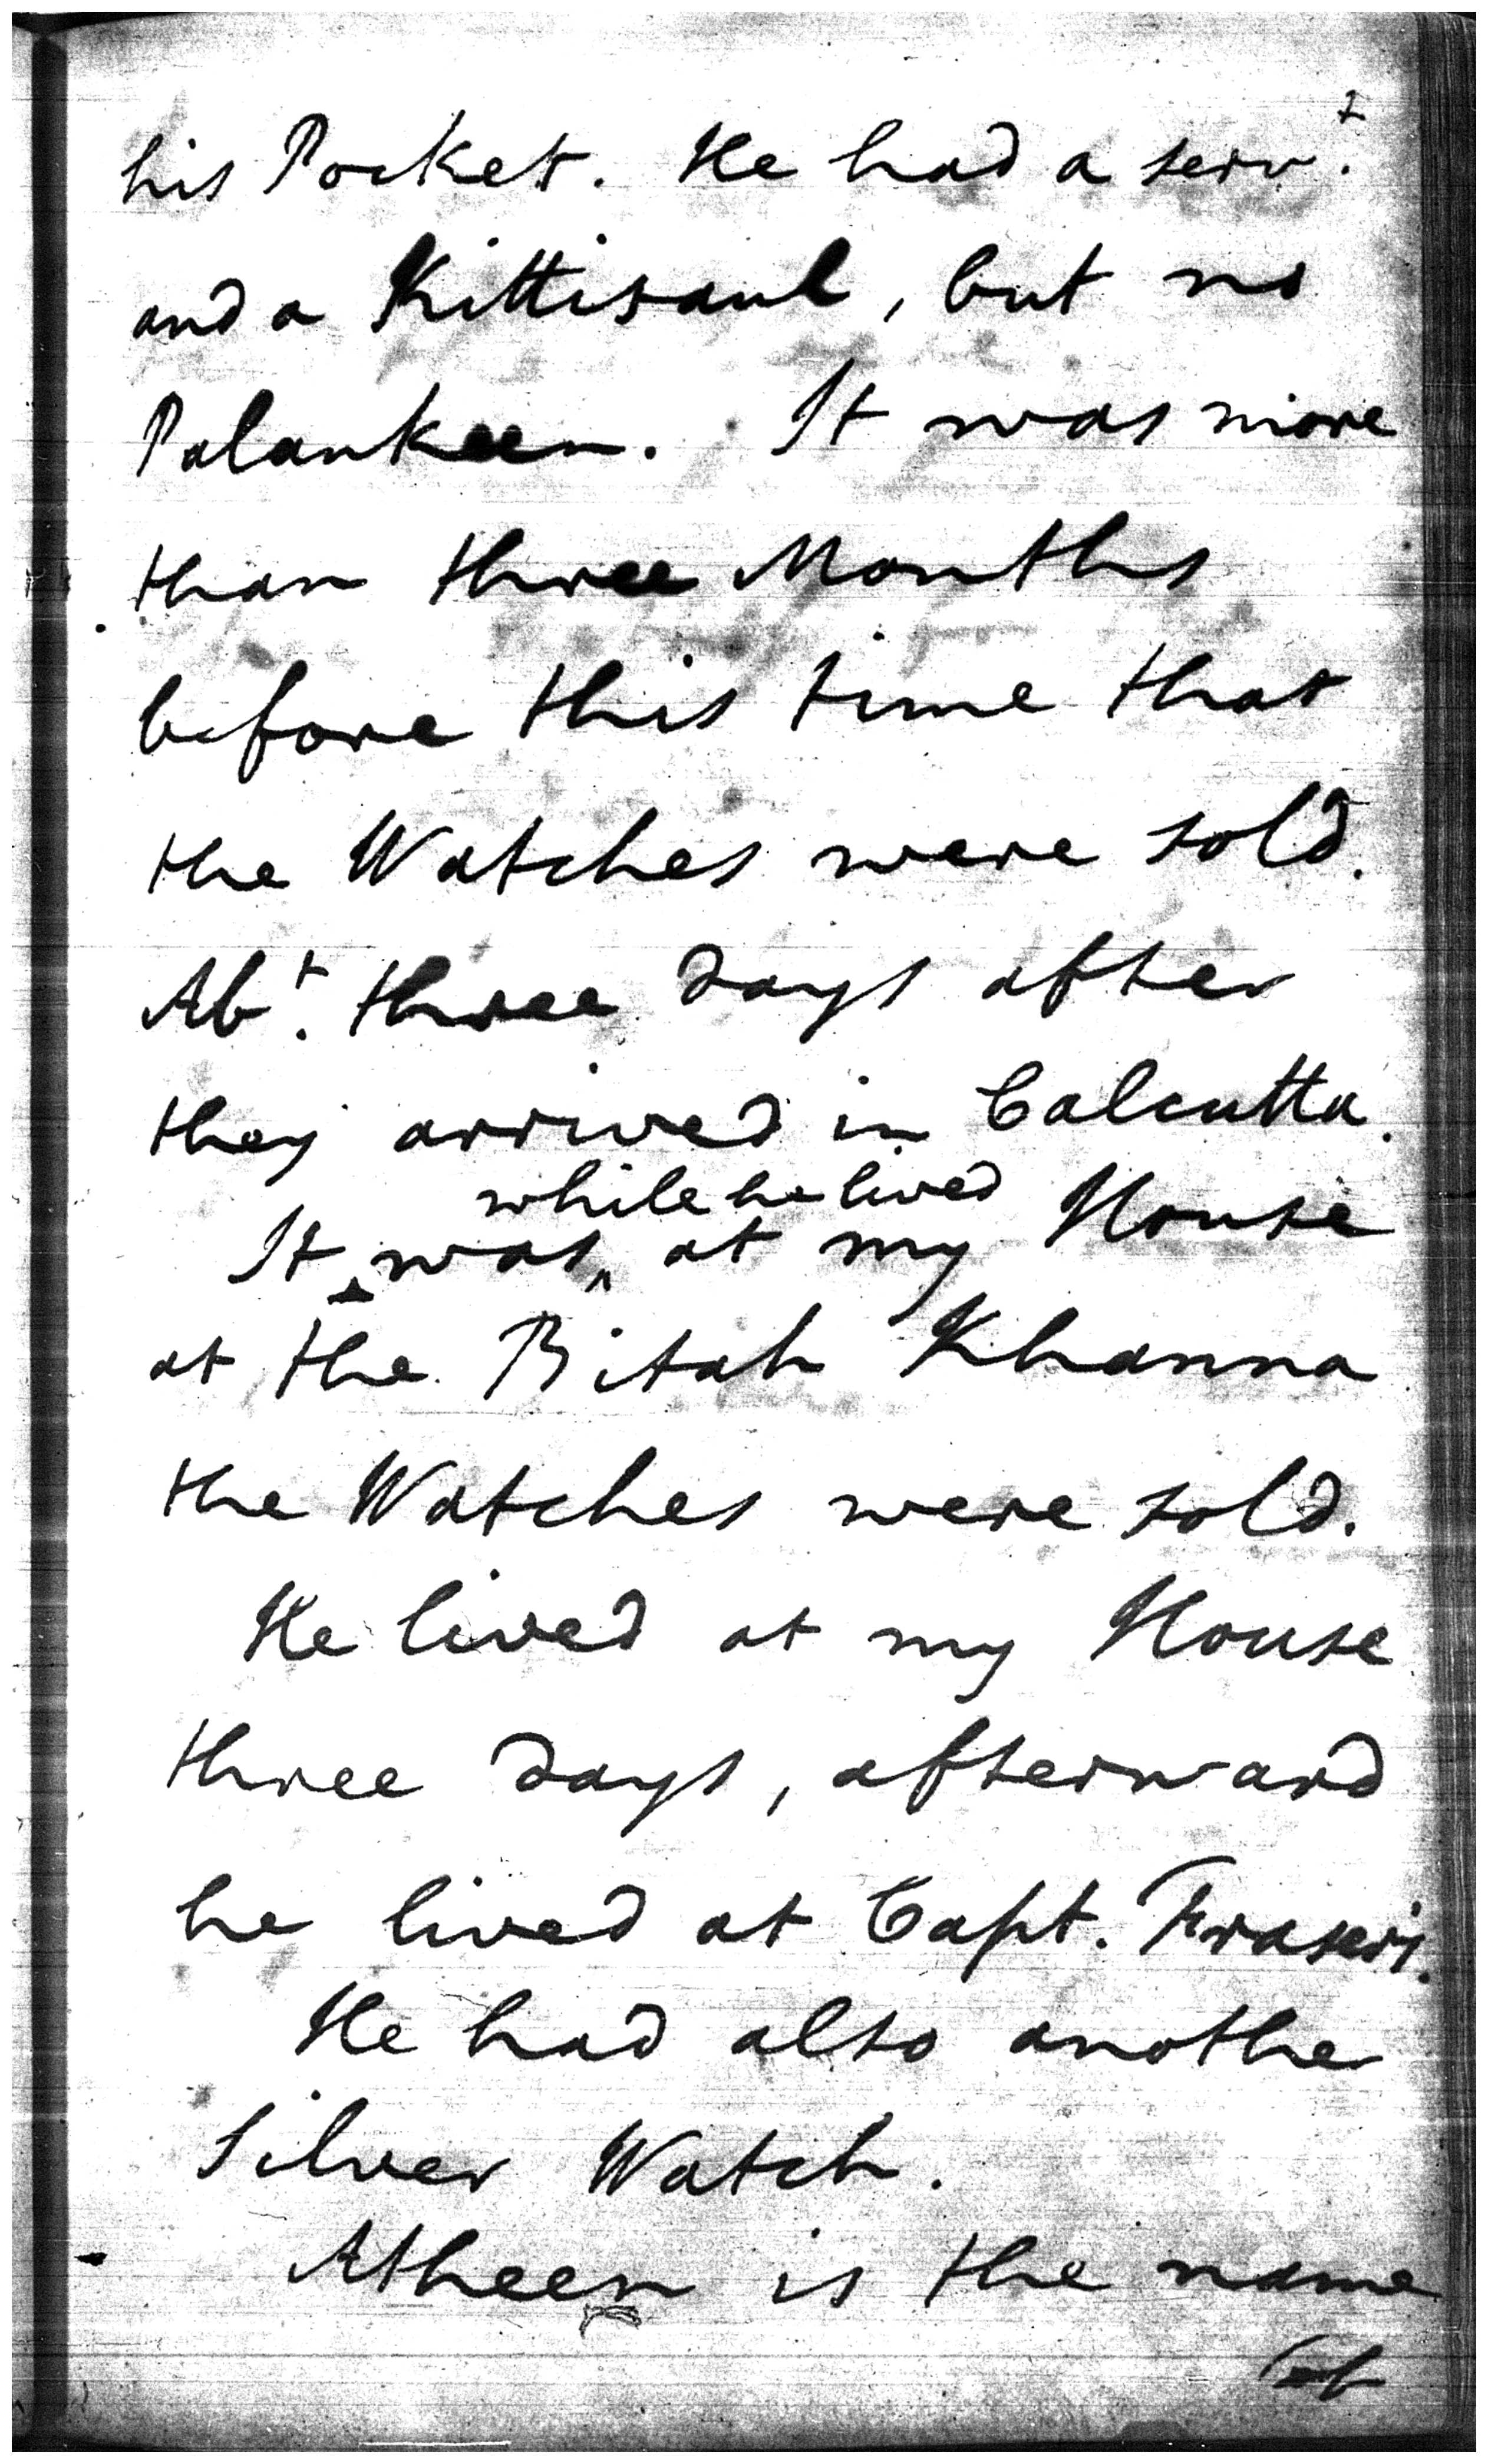 his Pocket. He had a serv.t
and a Kittisaul, but no
Palankeen. It was more
than three Months
before this time that
the Watches were sold.
Ab.t three days after
they arrived in Calcutta.
while he lived
It was at my House
at the Bitah Khanna
the Watches were sold.
He lived at my House
three days, afterward
he lived at Capt. Frasers.
He had also another
Silver Watch.
Atheen is the name
of